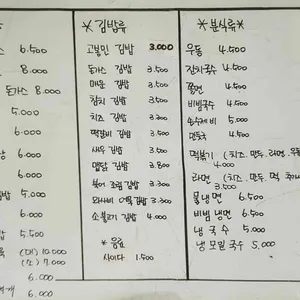 까스 6.500
8.000
돈가스 8.000
5.000
6.000
6.000
6.000
김밥 5.000
6.000
김밥 5.500
(대) 10.000
(소) 7.000
6.000
6.000
* 김밥류
고봉민 김밥 3.000
돈가스 김밥 3.500
매운 김밥 3.500
참치 김밥 3.500
치즈 김밥 3.300
떡갈비 김밥 3.500
새우 김밥 3.500
김밥 3.800
김밥 3.300
김밥 3.300
소불고기 김밥 4.000
* 음료
사이다 1.500
*분식류*
우동 4.500
잔치국수 4.500
쫄면 4.500
비빔국수 4.500
손수제비 5.000
만둣국 4.500
떡볶기 (치즈, 만두, 라면, 우동
4.000
라면 (치즈, 만두, 떡
3.500
물냉면 6.500
비빔냉면 6.500
냉국수 5.000
냉모밀국수 5.000